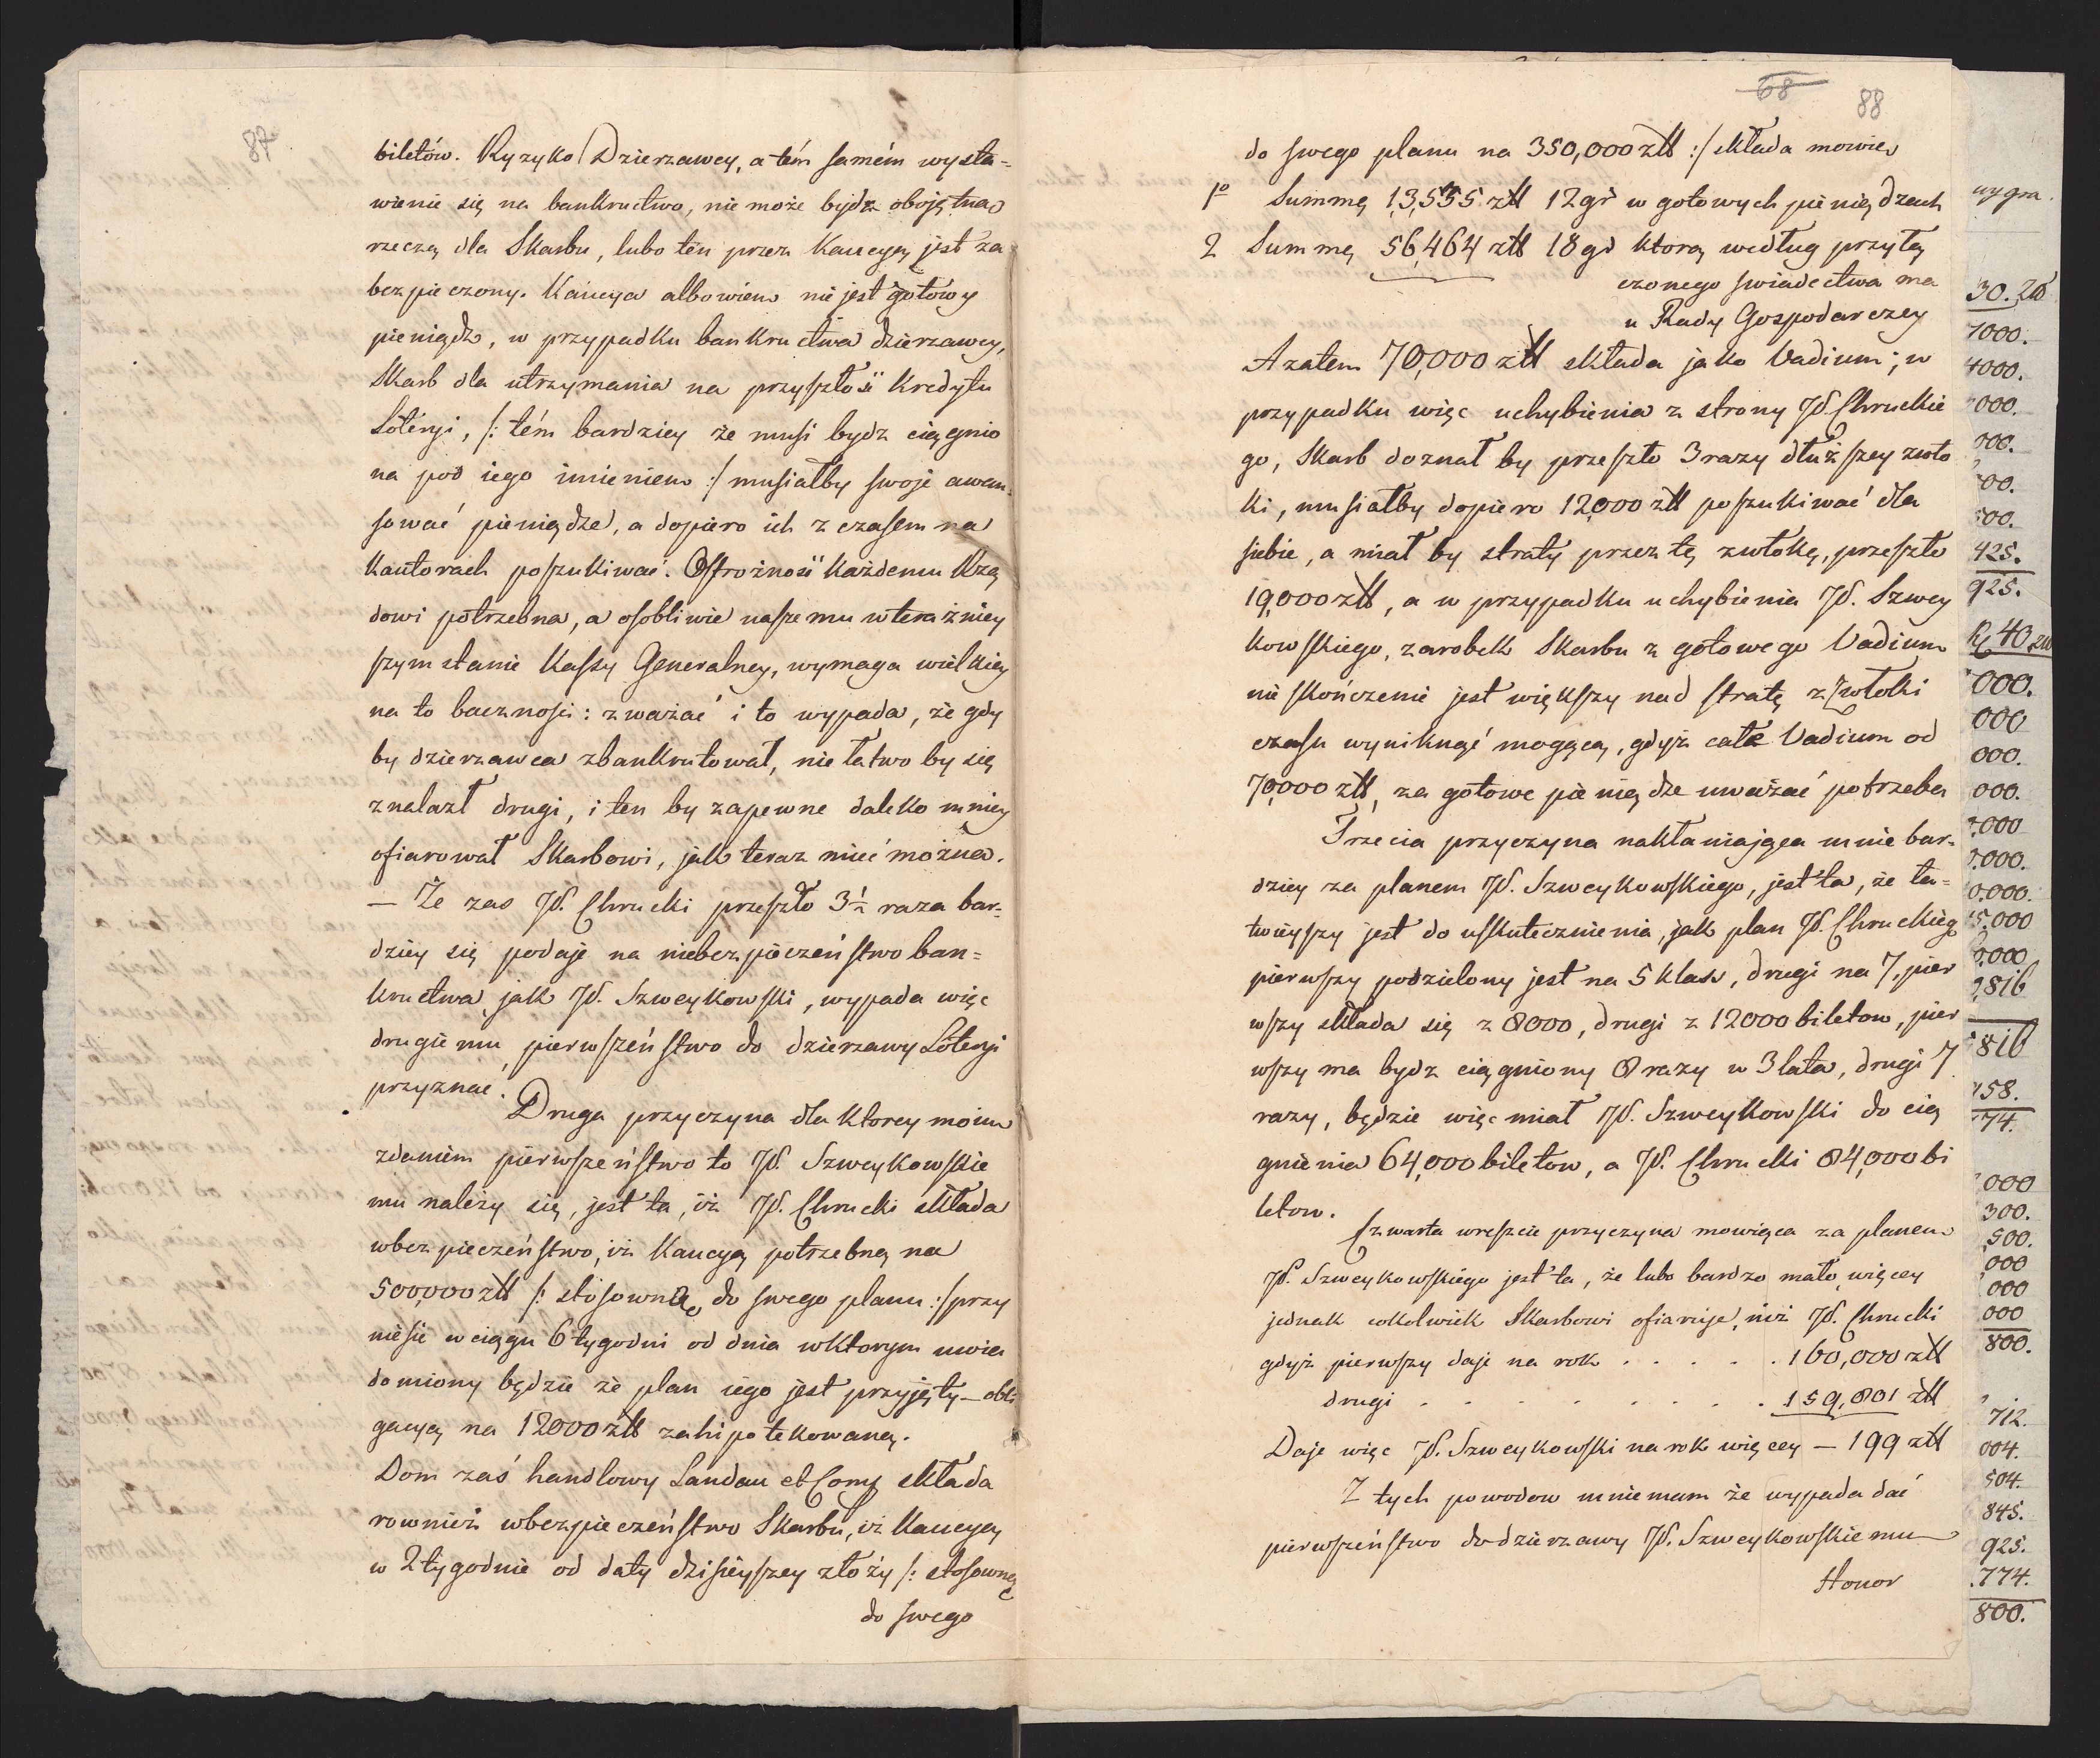 87
biletów. Ryzyko Dzierzawcy, a tém samém wysta=
wienie się na bankructwo, nie może bydz obojętna
rzeczą dla Skarbu, lubo ten przez Kaucyą jest za
bezpieczony. Kaucya albowiem nie jest gotowy
pieniądz, w przypadku bankructwa dzierzawcy,
Skarb dla utrzymania na przyszłość Kredytu
Loteryi, /: tém bardziey że musi bydz ciągnio
na pod iego imieniem :/ musiałby swoje awan=
sować pieniądze, a dopiero ich z czasem na
Kantorach poszukiwać. Ostrożność każdemu Rzą
dowi potrzebna, a osobliwie naszemu w teraźniey
szym stanie Kassy Generalney, wymaga wielkiey
na to baczności: zważać i to wypada, że gdy
by dzierzawca zbankrutował, nie łatwo by się
znalazł drugi, i ten by zapewne daleko mniey
ofiarował Skarbowi, jak teraz mieć można.
— Że zas JP. Chrucki przeszło 3½ raza bar=
dziey się podaje na niebezpieczeństwo ban=
kructwa jak JP. Szweykowski, wypada więc
drugiemu pierwszeństwo do dzierzawy Loteryi
przyznać.
Druga przyczyna dla ktorey moim
zdaniem pierwszeństwo to JP. Szweykowskie
mu należy się, jest ta, iż JP. Chrucki składa
w bezpieczeństwo, iż Kaucyą potrzebną na
500,000 złł /: stosowną do swego planu :/ przy
niesie w ciągu 6 tygodni od dnia w ktorym uwia
domiony będzie że plan iego jest przyjęty — obli
gacyą na 12000 złł zahipotekowaną.
Dom zaś handlowy Landau et Comp składa
rownież w bezpieczeństwo Skarbu, iż Kaucyą
w 2 tygodnie od daty dzisieyszey złoży /: stosowną
do swego
68
88
do swego planu na 350,000 złł :/ składa mowię
1º Summę 13,535 złł 12 gr w gotowych pieniądzach
2 Summę 56,464 złł 18 gr ktorą według przyłą
czonego swiadectwa ma
u Rady Gospodarczey
A zatem 70,000 złł składa jako Vadium; w
przypadku więc uchybienia z strony JP. Chruckie
go, Skarb doznał by przeszło 3 razy dłuższey zwło
ki, musiałby dopiero 12,000 złł poszukiwać dla
siebie, a miał by straty przez tę zwłokę, przeszło
19,000 złł, a w przypadku uchybienia JP. Szwey
kowskiego, zarobek Skarbu z gotowego Vadium
nieskończenie jest większy nad stratę z zwłoki
czasu wyniknąć mogącą, gdyż całe Vadium od
70,000 złł, za gotowe pieniądze uważać potrzeba
Trzecia przyczyna nakłaniająca mnie bar=
dziey za planem JP. Szweykowskiego, jest ta, że ła=
twieyszy jest do uskutecznienia, jak plan JP. Chruckieg
pierwszy podzielony jest na 5 klass, drugi na 7. pier
wszy składa się z 8000, drugi z 12000 biletow, pier
wszy ma bydz ciągniony 8 razy w 3 lata, drugi 7
razy, będzie więc miał JP. Szweykowski do cią
gnienia 64,000 biletow, a JP. Chrucki 84,000 bi
letow.
Czwarta wreszcie przyczyna mowiąca za planem
JP. Szweykowskiego jest ta, że lubo bardzo mało więcey
jednak cokolwiek Skarbowi ofiaruje, niż JP. Chrucki
gdyż pierwszy daje na rok . . . . . 160,000 złł
drugi . . . . . . . . 159,801 złł
Daje więc JP. Szweykowski na rok więcey — 199 złł
Z tych powodow mniemam że wypada dać
pierwszeństwo do dzierzawy JP. Szweykowskiemu
Honor
wygra.
30. złł
1000.
4000.
000.
000.
00.
500.
425.
925.
40
000.
000
000.
000.
000
000.
0.000.
15.000
0.000
816
816
158.
774.
000
300.
500.
000
000
000
800.
712.
004.
504.
845.
925.
774.
800.